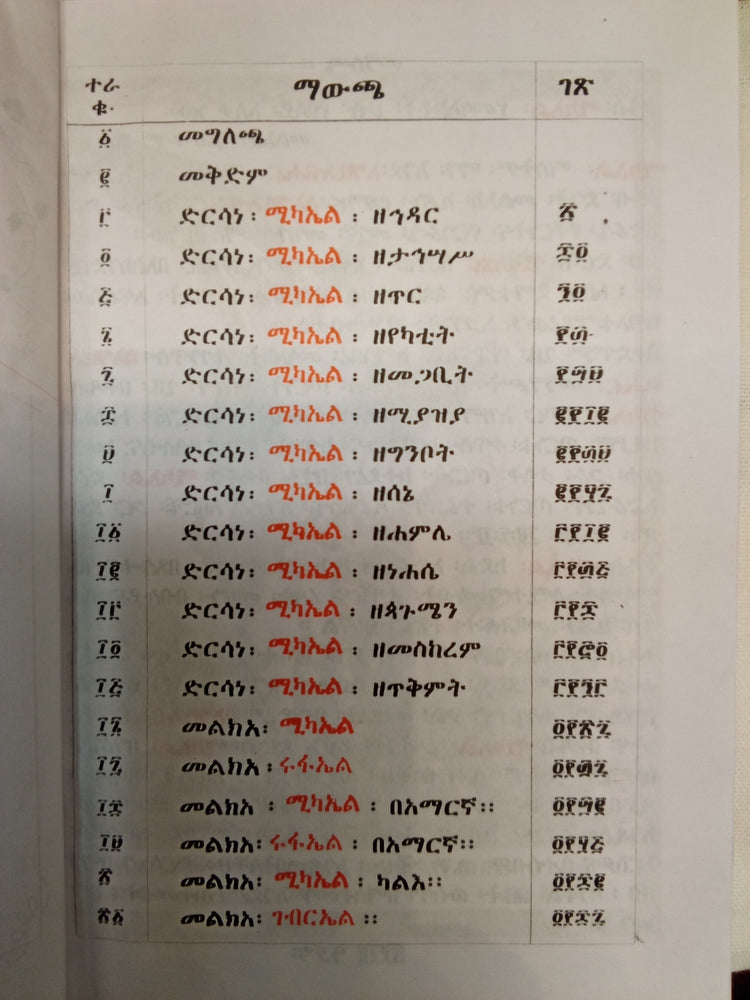 ተራ ቁ· ማውጫ ገጽ
፩ መግለጫ
፪ መቅድም
፫ ድርሳነ፡ ሚካኤል ፡ ዘኅዳር ፳
፬ ድርሳነ፡ ሚካኤል ፡ ዘታኅሣሥ ፷፬
፭ ድርሳነ፡ ሚካኤል ፡ ዘጥር ፺፬
፮ ድርሳነ፡ ሚካኤል ፡ ዘየካቲት ፻፴
፯ ድርሳነ፡ ሚካኤል ፡ ዘመጋቢት ፻፵፱
፰ ድርሳነ፡ ሚካኤል ፡ ዘሚያዝያ ፪፻፲፪
፱ ድርሳነ፡ ሚካኤል ፡ ዘግንቦት ፪፻፴፱
፲ ድርሳነ፡ ሚካኤል ፡ ዘሰኔ ፪፻፶፯
፲፩ ድርሳነ፡ ሚካኤል ፡ ዘሐምሌ ፫፻፲፪
፲፪ ድርሳነ፡ ሚካኤል ፡ ዘነሐሴ ፫፻፴፭
፲፫ ድርሳነ፡ ሚካኤል ፡ ዘጳጉሜን ፫፻፷
፲፬ ድርሳነ፡ ሚካኤል ፡ ዘመስከረም ፫፻፸፬
፲፭ ድርሳነ፡ ሚካኤል ፡ ዘጥቅምት ፫፻፺፫
፲፮ መልክአ፡ ሚካኤል ፬፻፳፯
፲፯ መልክአ ፡ ሩፋኤል ፬፻፴፯
፲፰ መልክአ ፡ ሚካኤል ፡ በአማርኛ። ፬፻፵፪
፲፱ መልክአ፡ ሩፋኤል ፡ በአማርኛ። ፬፻፶፭
፳ መልክአ፡ ሚካኤል ፡ ካልእ። ፬፻፷፪
፳፩ መልክአ፡ ገብርኤል ። ፬፻፷፯